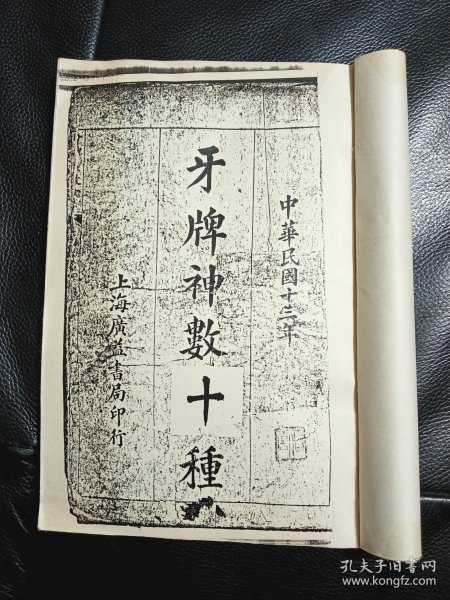 中華民國十三年
牙牌神數十種
上海廣益書局印行
孔夫子旧书网
www.kongfz.com